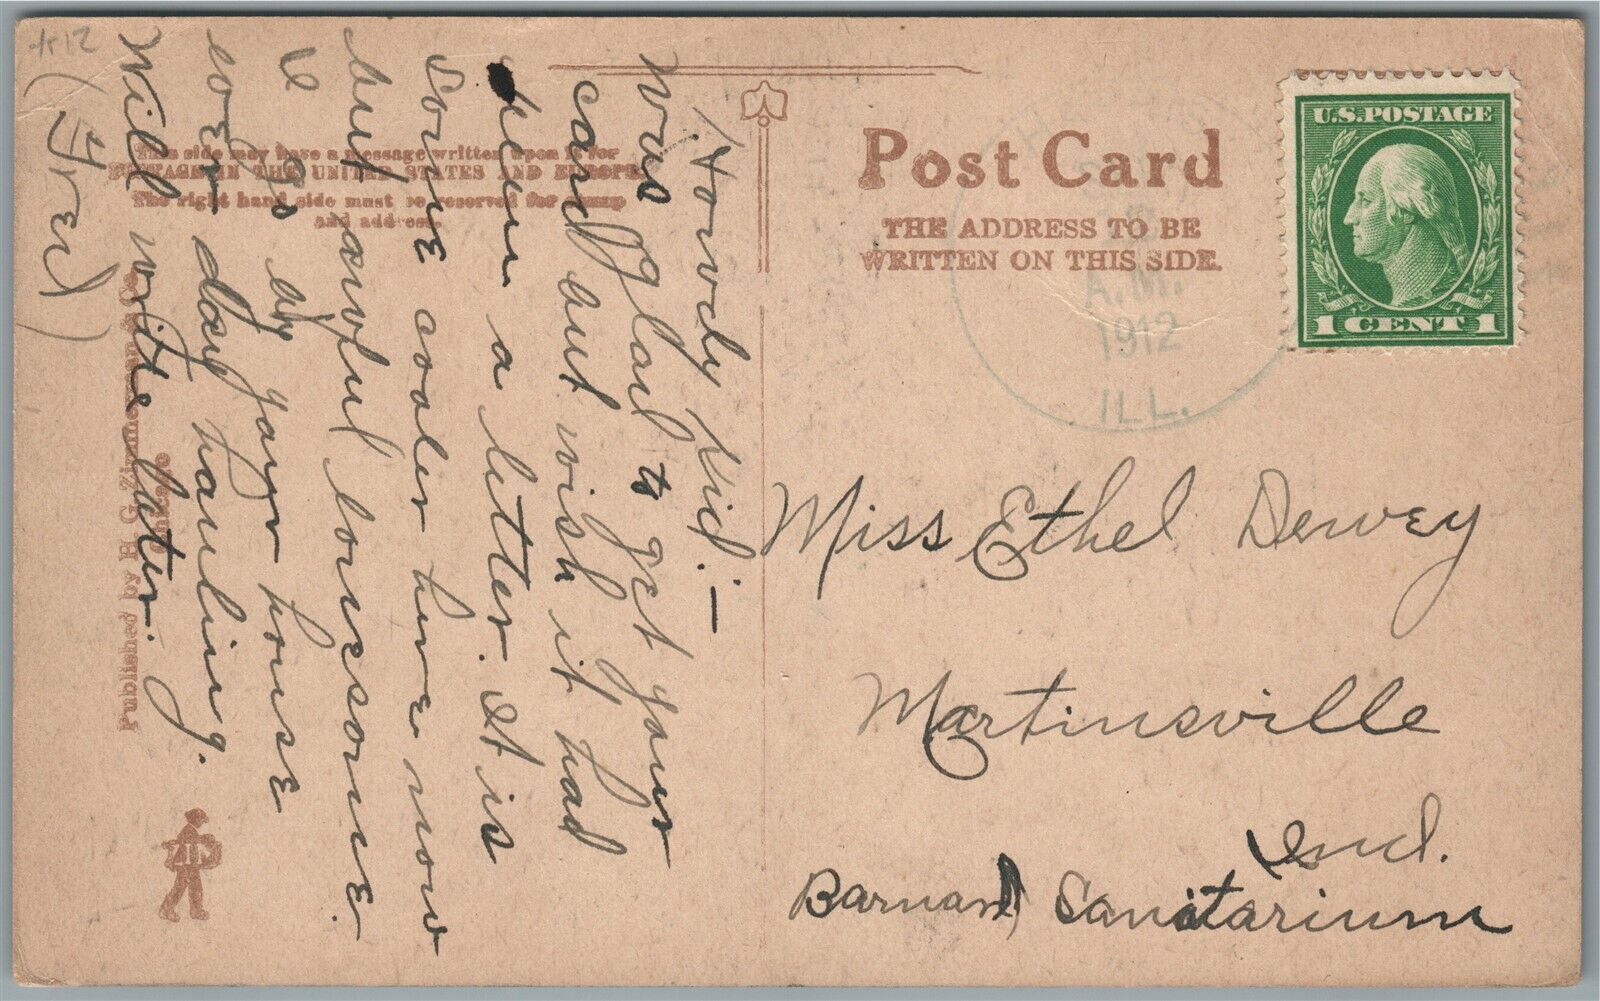 Howdy Kid:—
Was glad to get your
card but wish it had
been a letter. It is
some cooler here now
but awful lonesome.
I go by your house
ever day hauling.
Will write later.
(Fred)
This side may have a message written upon it for
POSTAGE IN THE UNITED STATES AND EUROPE
The right hand side must be reserved for stamp
and address.
Published by H. G. Zimmerman & Co.
Chicago
ZIM
Post Card
THE ADDRESS TO BE
WRITTEN ON THIS SIDE.
U.S. POSTAGE
1 CENT 1
A.M.
1912
ILL.
Miss Ethel Dewey
Martinsville
Ind.
Barnard Sanitarium